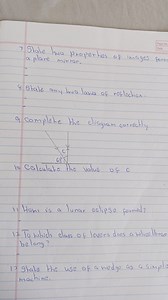 7. State two properties of images formed
a plane mirror.
8. State any two laws of reflection.
9. Complete the diagram correctly
i
60
10. Calculate the value of i
11. How is a lunar eclipse formed?
12. To which class of levers does a wheelbarrow
belong?
13. State the use of a wedge as a simple
machine.